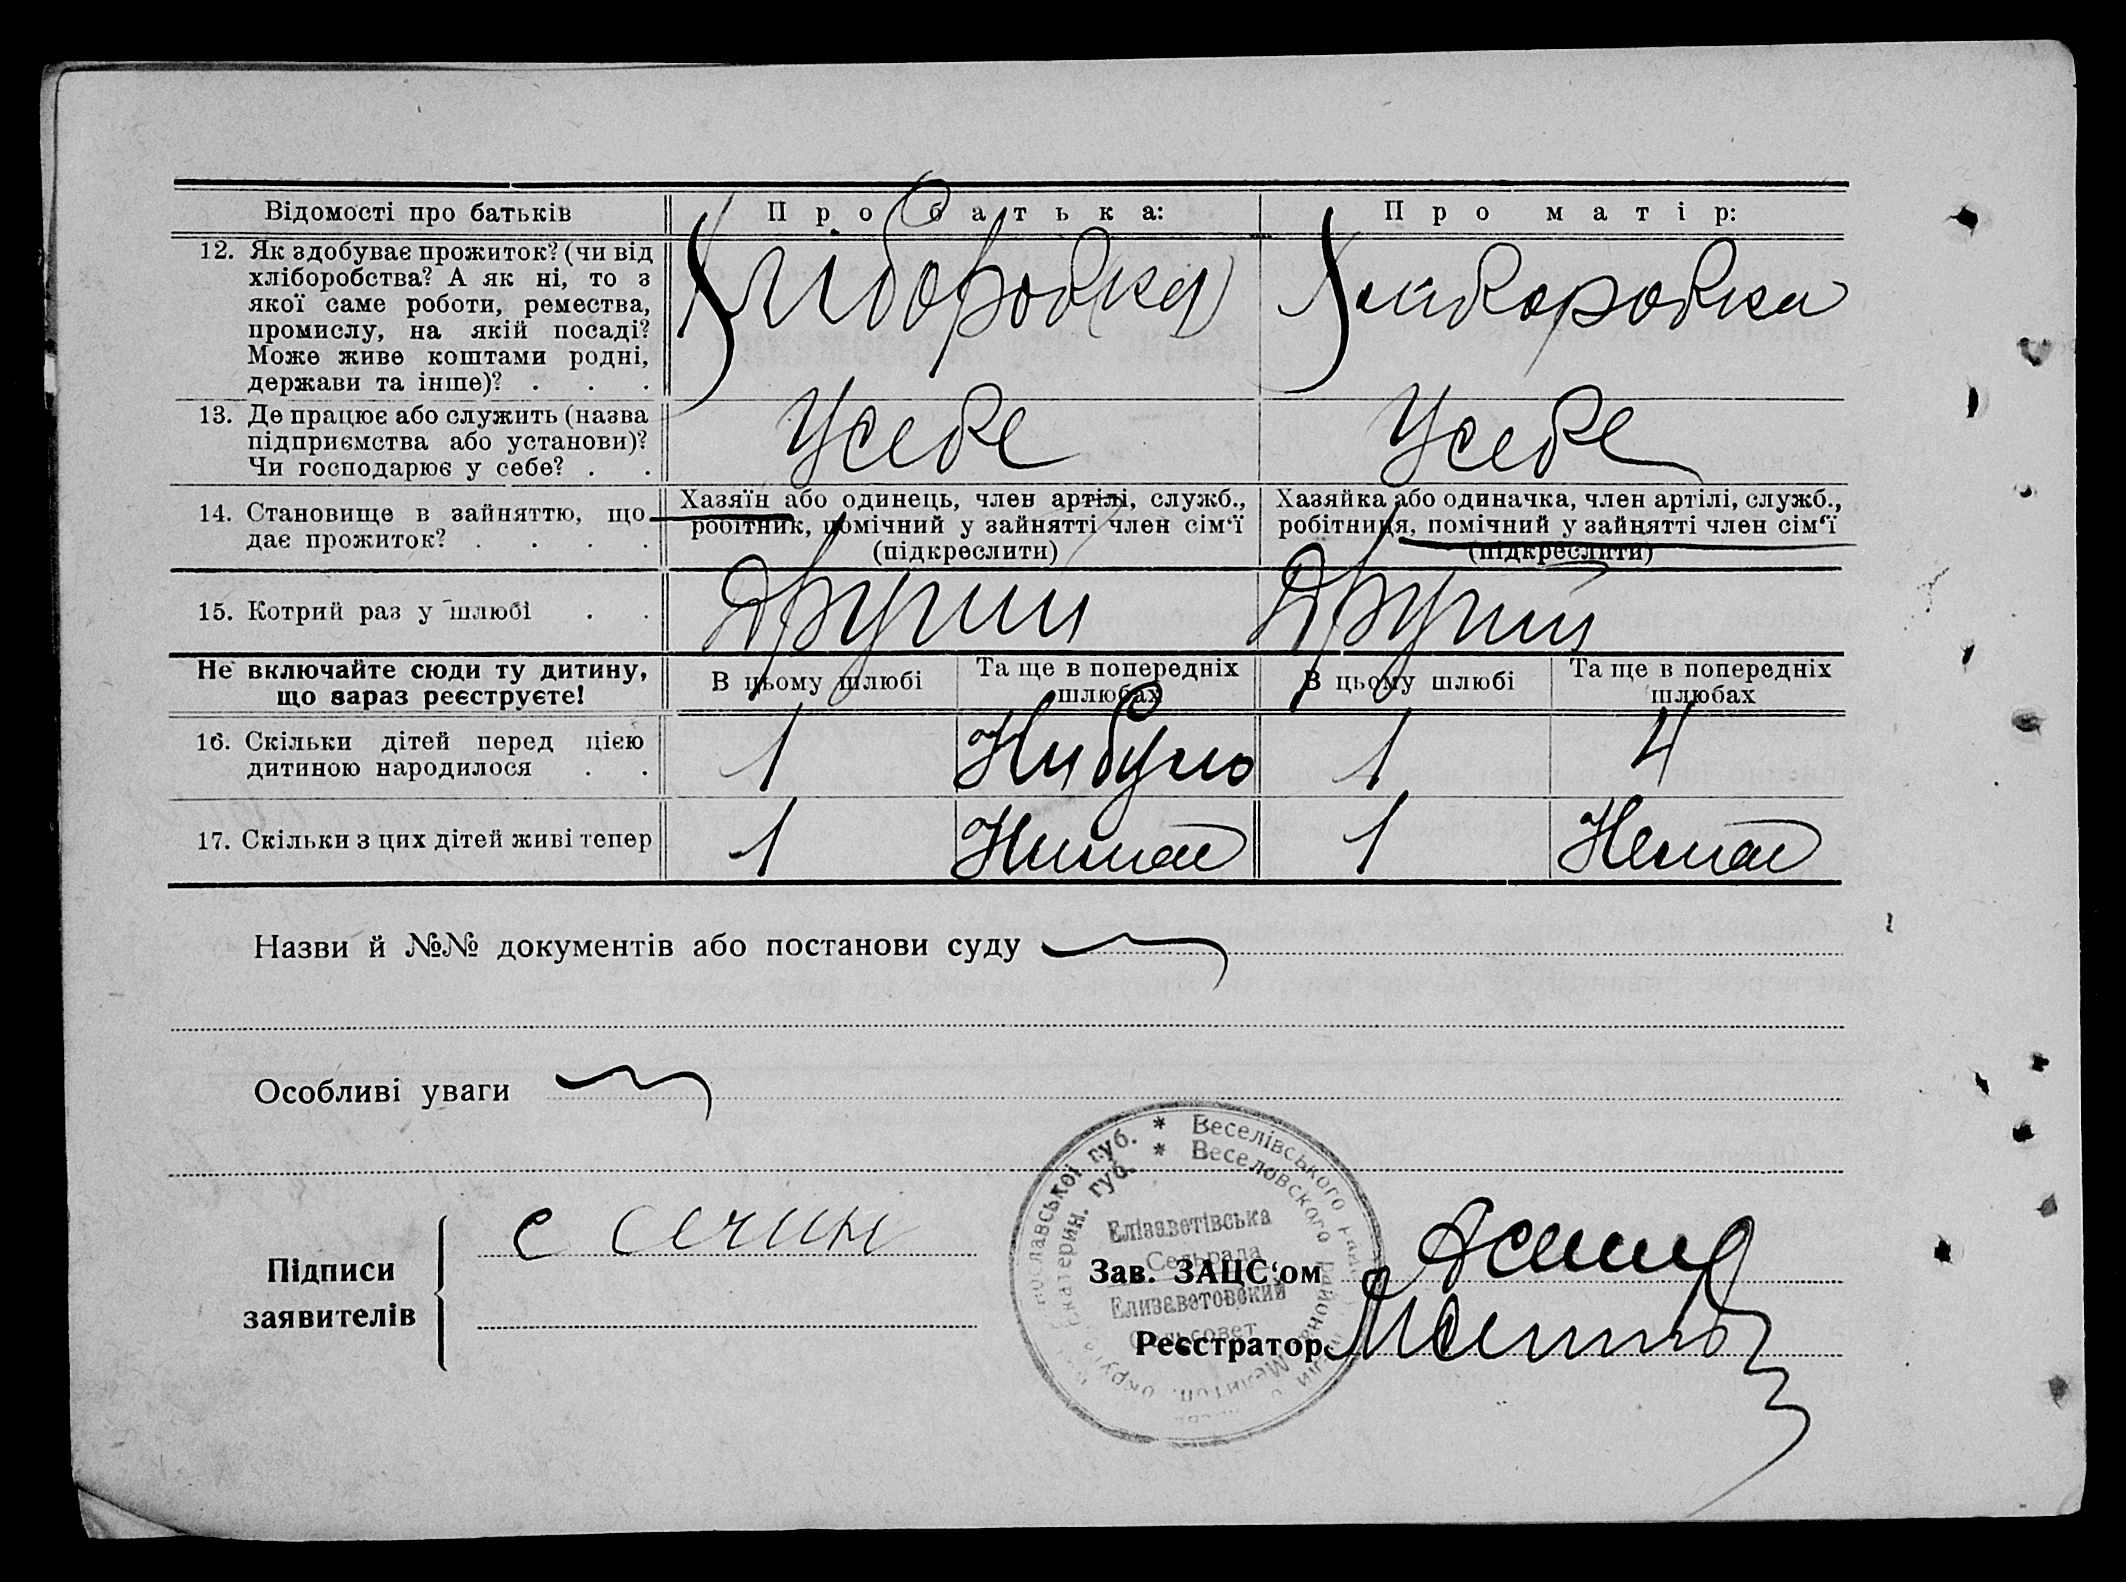 Відомості про батьків
Про батька:
Про матір:
12. Як здобуває прожиток? (чи від
хліборобства? А як ні, то з
якої саме роботи, ремества,
промислу, на якій посаді?
Може живе коштами родні,
держави та інше)? . . .
Хліборобка
13. Де працює або служить (назва
підприємства або установи)?
Чи господарює у себе? . .
Усебе
Усебе
14. Становище в зайняттю, що
дає прожиток? . . . .
Хазяїн або одинець, член артілі, служб.,
робітник, помічний у зайнятті член сім‘ї
(підкреслити)
Хазяйка або одиначка, член артілі, служб.,
робітниця, помічний у зайнятті член сім‘ї
(підкреслити)
15. Котрий раз у шлюбі . .
Другий
Другий
Не включайте сюди ту дитину,
що зараз реєструєте!
В цьому шлюбі
Та ще в попередніх
шлюбах
В цьому шлюбі
Та ще в попередніх
шлюбах
16. Скільки дітей перед цією
дитиною народилося . .
1
Нибуло
1
4
17. Скільки з цих дітей живі тепер
1
Нимає
1
Немає
Назви й №№ документів або постанови суду
Особливі уваги
Підписи
заявителів
Зав. ЗАЦС‘ом
Реєстратор
* Веселівського
* Веселовского Районна
Мелитоп. округа Екатерин. губ.
славської губ.
Елізаветівська
Сельрада
Елизаветовский
Сельсовет